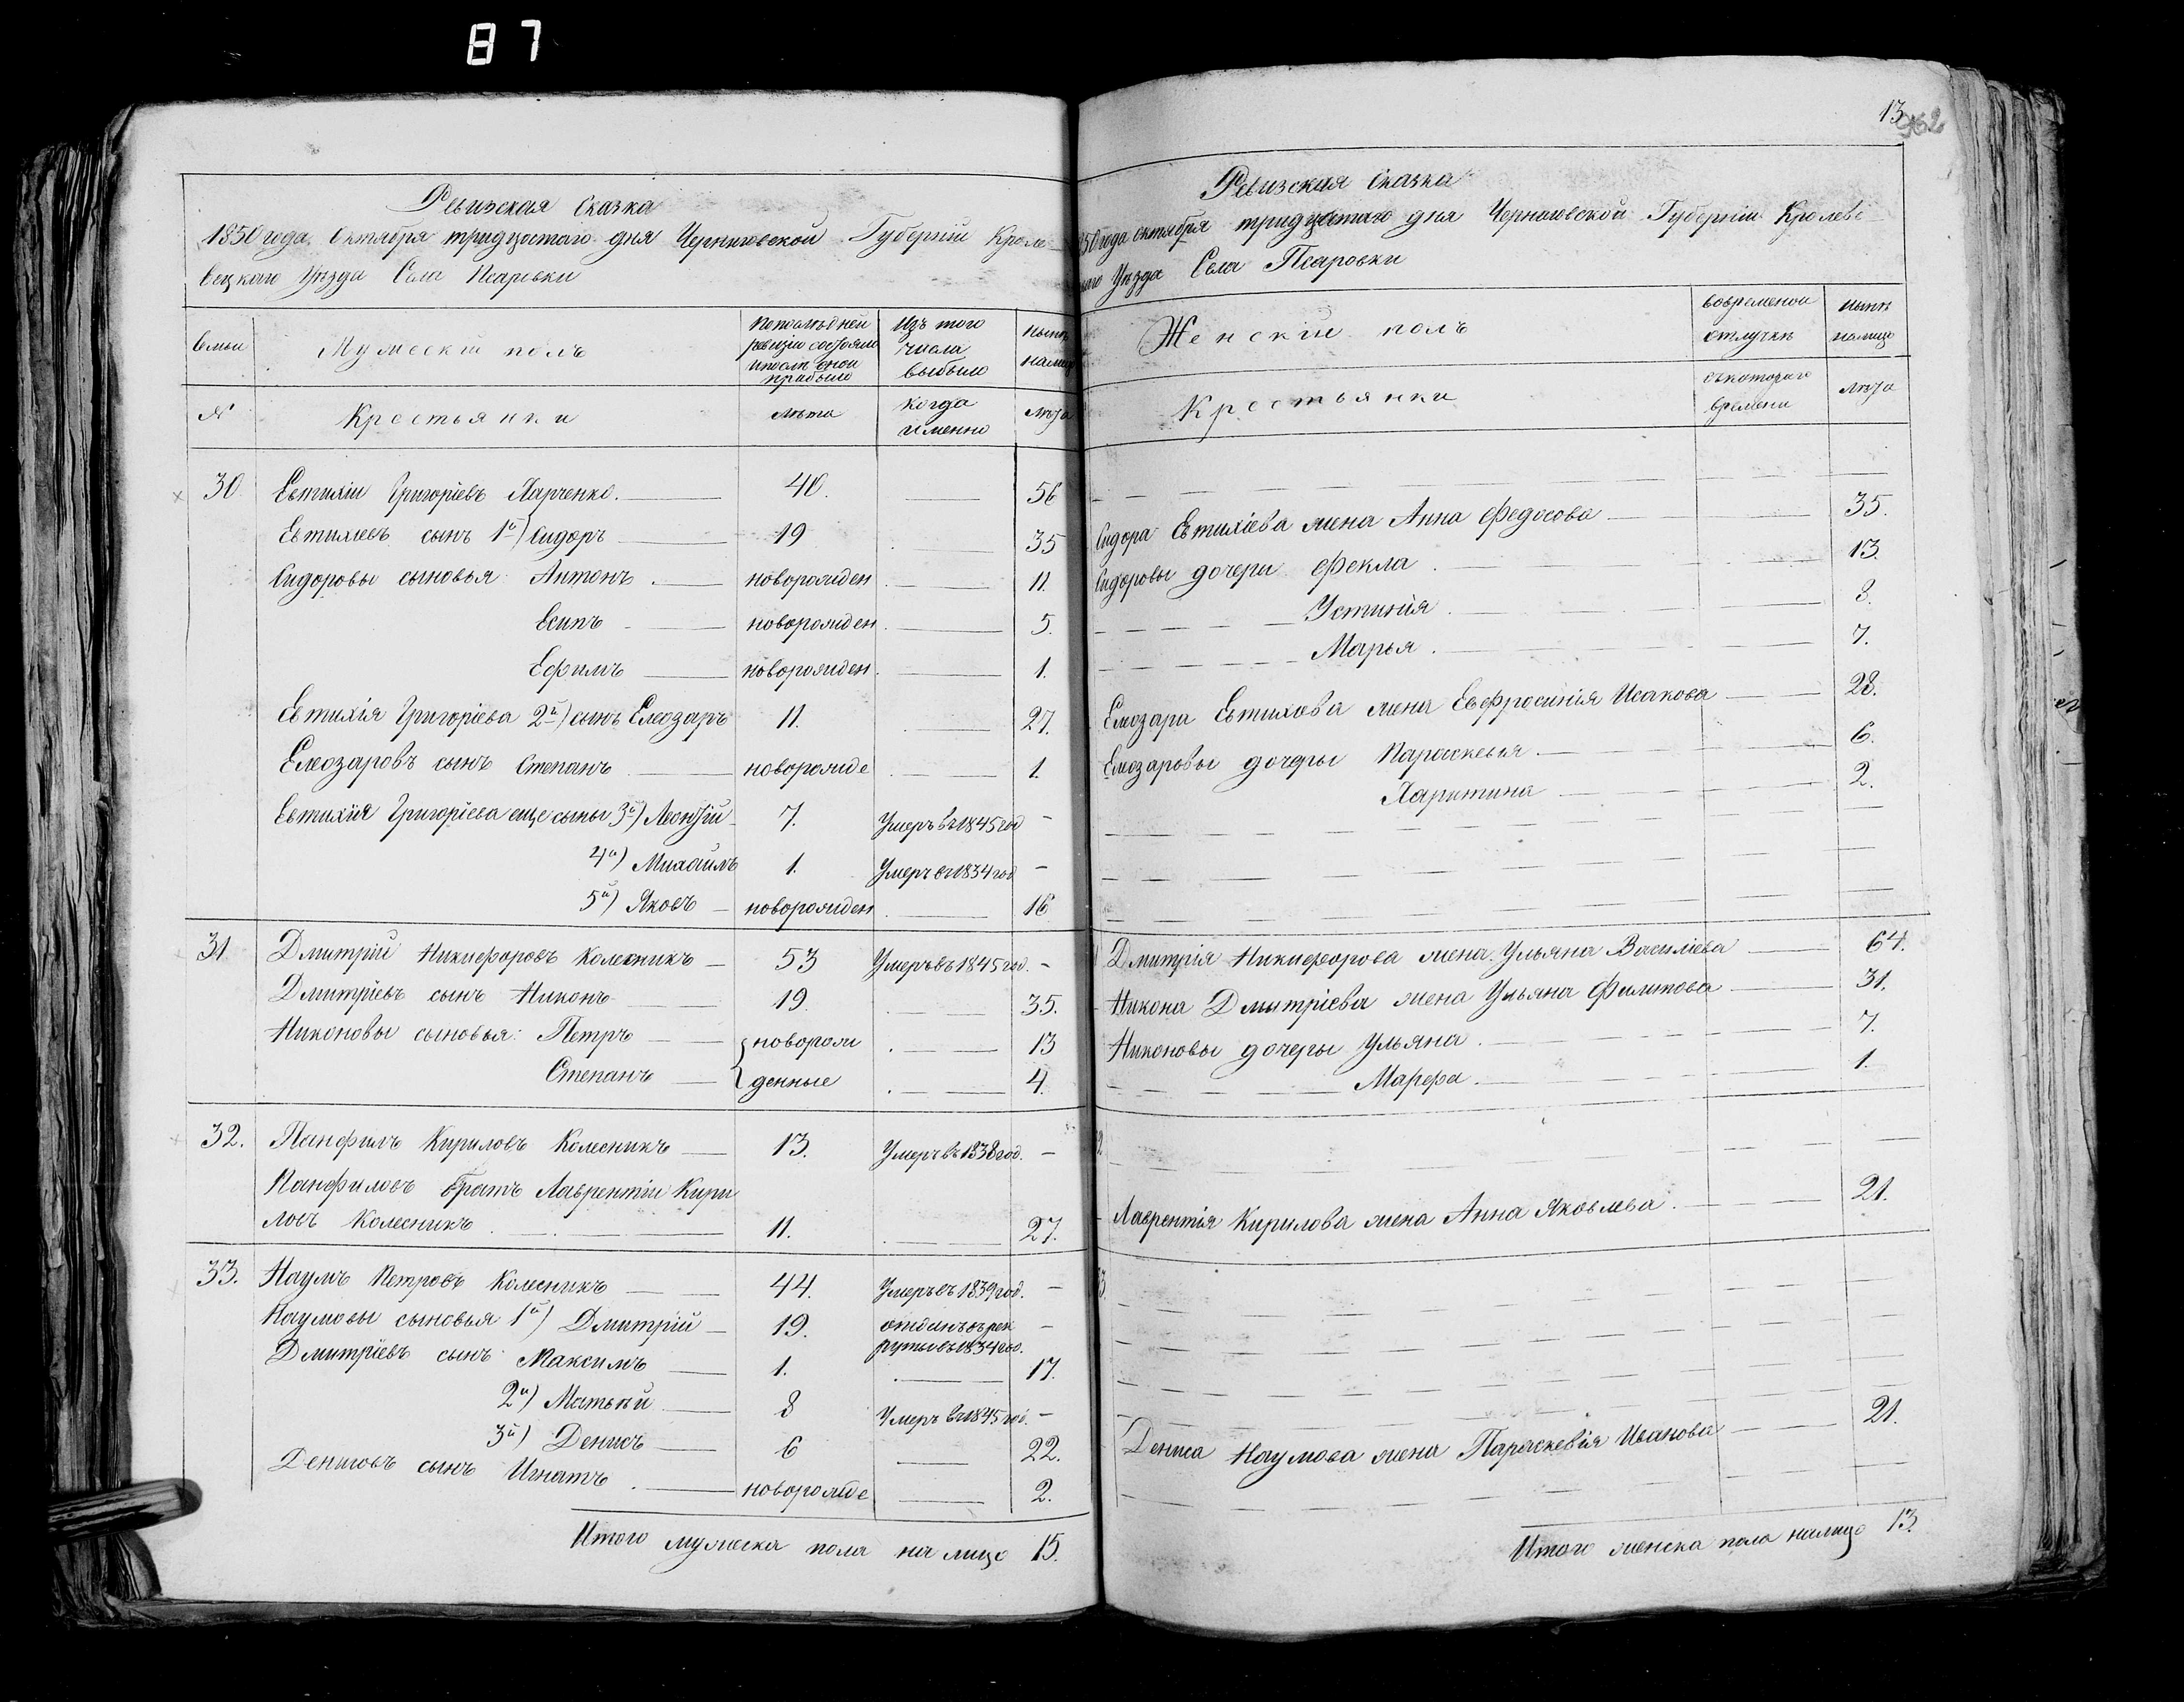 87
Ревизская Сказка
1850 года. Октября тридцатаго дня Черниговской Губерніи Кроле-
вецкаго Уѣзда Села Псаровки
семьи
Мужескій полъ
Попослѣдней
ревизіи состояло
ипослѣ оной
прибыло
Изъ того
числа
выбыло
нынѣ
налицо
№
Крестьянки
лѣта
когда
именно
лѣта
30. Евтихіи Григоріевъ Харченко. 40. 56
Евтихіевъ сынъ 1й) Сидоръ 19 35
Сидоровы сыновья: Антонъ новорожден 11.
Есипъ новорожден 5.
Ефимъ новорожден 1.
Евтихія Григоріева 2й) сынъ Елеозаръ 11. 27.
Елеозаровъ сынъ Степанъ новорожде 1.
Евтихія Григоріева еще сыны 3й) Леонтій 7. Умеръ въ 1845 год -
4й) Михаилъ 1. Умеръ въ 1834 год -
5й) Яковъ новорожден 16
31. Дмитрій Никифоровъ Колесникъ 53 Умеръ въ 1845 год. -
Дмитріевъ сынъ Никонъ 19. 35.
Никоновы сыновья: Петръ новорож 13
Степанъ денные 4.
32. Панфилъ Кириловъ Колесникъ 13. Умеръ въ 1838 год. -
Панфиловъ братъ Лаврентіи Кири
ловъ Колесникъ 11. 27.
33. Наумъ Петровъ Колесникъ 44. Умеръ въ 1839 год. -
Наумовы сыновья 1й) Дмитрій 19. отданъ въ рек -
руты въ 1834 год.
Дмитріевъ сынъ Максимъ 1. 17.
2й) Матвѣй 8 Умеръ въ 1845 год. -
3й) Денисъ 6 22.
Денисовъ сынъ Игнатъ новорожде 2.
Итого мужеска пола на лицо 15.
13
962
Ревизская Сказка
850 года октября тридцатаго дня Черниговской Губерніи Кролеве
каго Уѣзда Села Псаровки
Женскій полъ
вовременой
отлучкѣ
нынѣ
налицо
Крестьянки
съкотораго
времени
лѣта
Сидора Евтихіева жена Анна Федосова 35.
Сидоровы дочери Фекла 13.
Устинія 8.
Марья 7.
Елеозара Евтихіева жена Евфросинія Исакова 28.
Елеозаровы дочеры Параскевія 6.
Харитина 2.
Дмитрія Никифорова жена Ульяна Василіева 64.
Никона Дмитріева жена Ульяна Филипова 31.
Никоновы дочеры Ульяна 7.
Марфа 1.
Лаврентія Кирилова жена Анна Яковлева 21.
Дениса Наумова жена Параскевія Иванова 21.
Итого женска пола налицо 13.